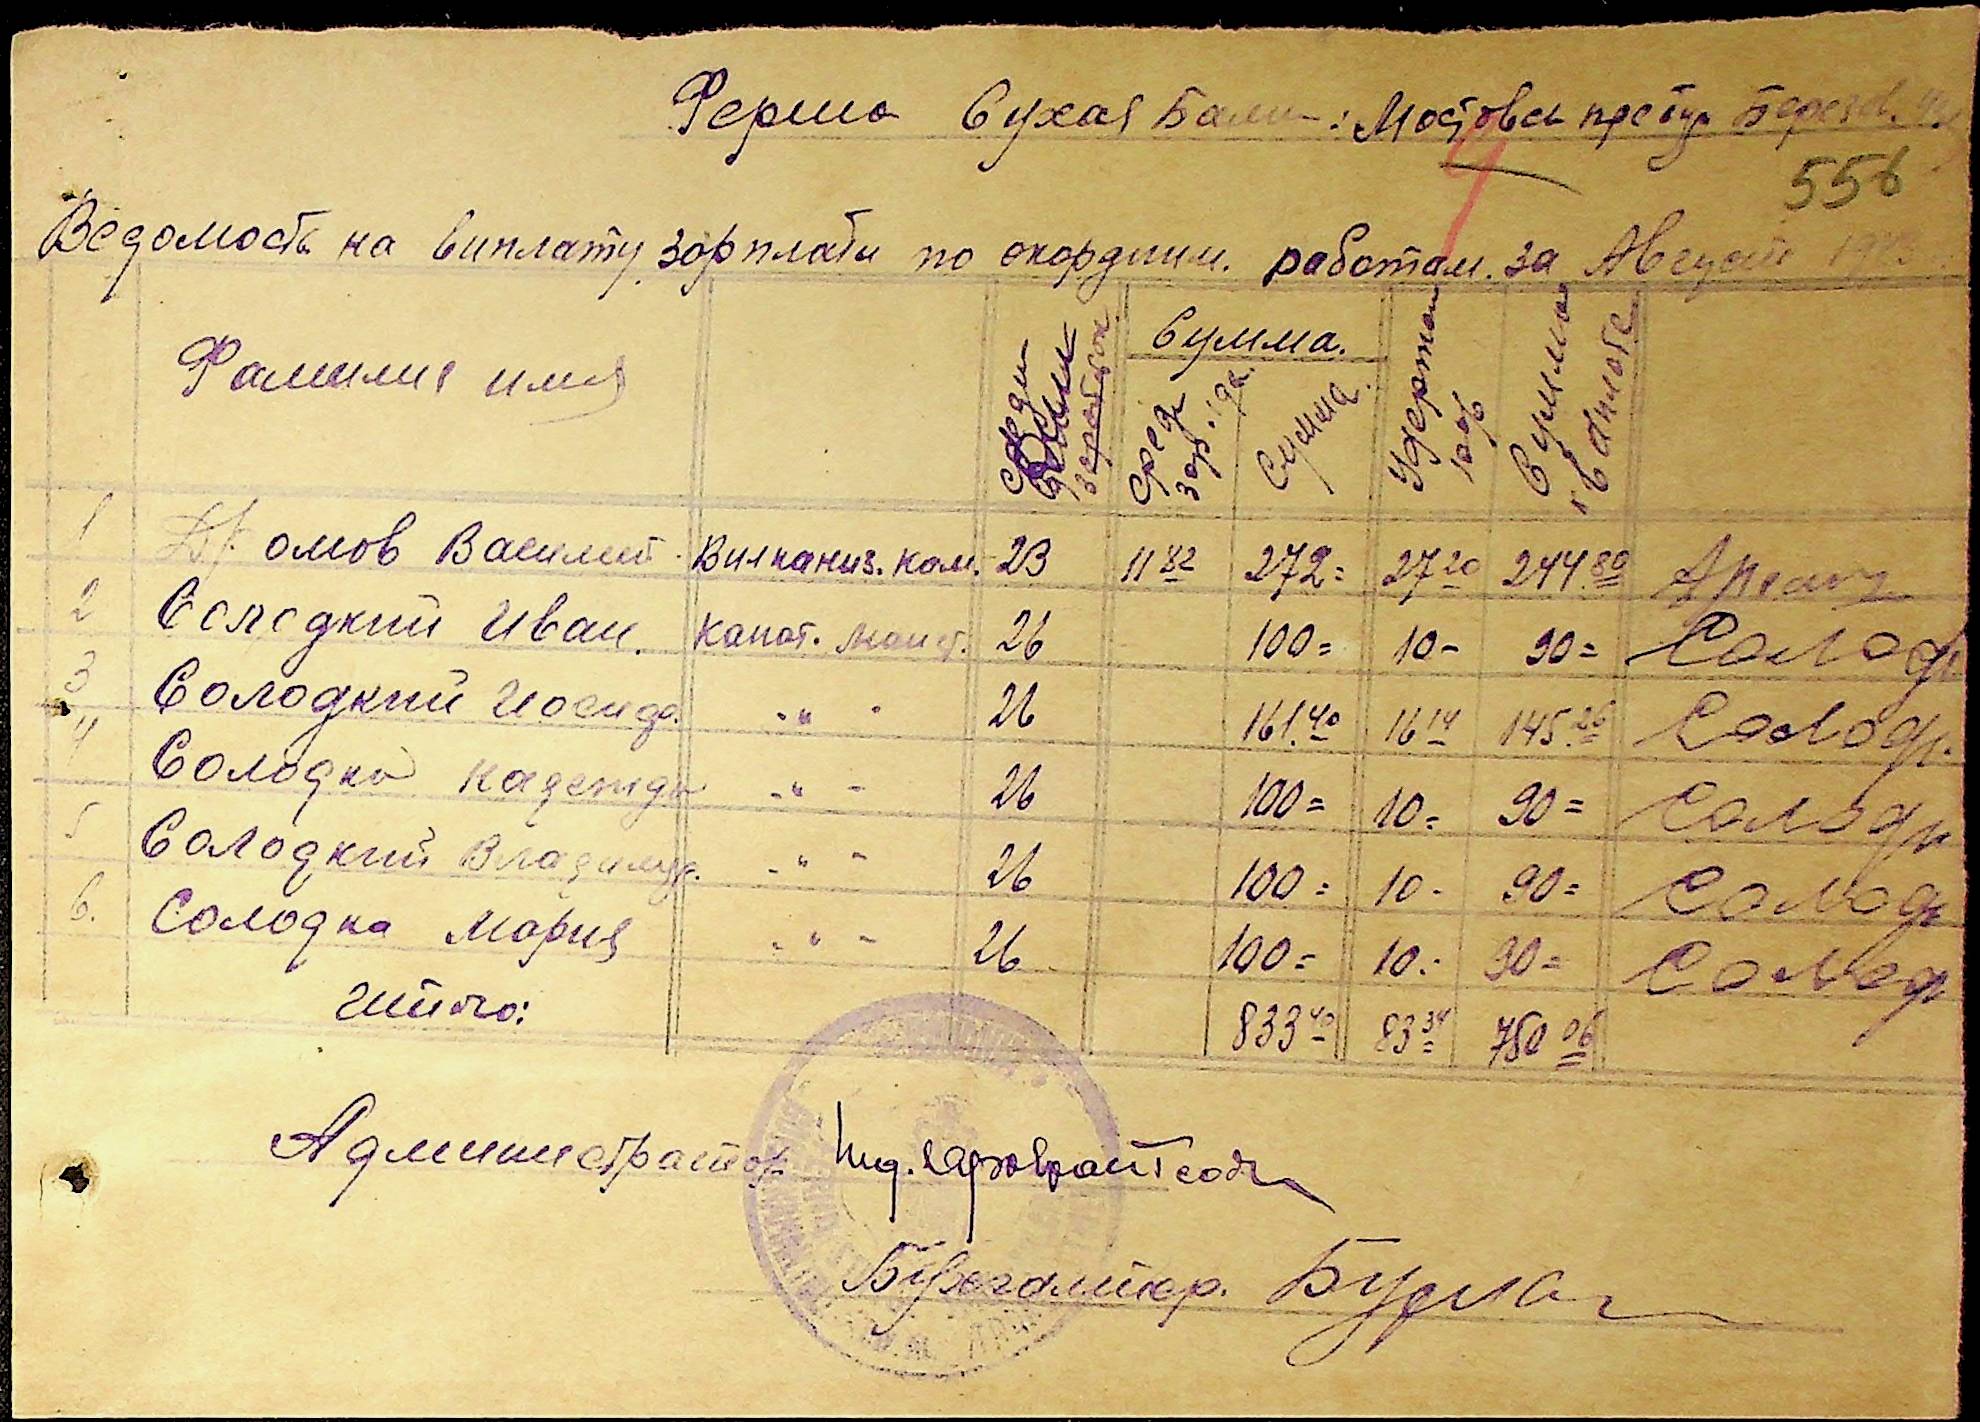 Ферма Сухая Балк : Мостовск прету Березов.
556
Ведомость на виплату зарплати по окордним. работам. за Август 1943
Фамилия имя
Сумма.
Сред зар. 1 дн.
Сумма
Удержан 10%
Сумма к виплате
1 омов Василий Вилканиз. кам. 23 11 82 272= 27 20 244.80
2 Солодкий Иван. Капот. 26 100= 10- 90= Солод
3 Солодкий Иосиф. -"- 26 161.40 16 14 145.26 Солод.
4 Солодка Надежда -"- 26 100= 10= 90= Солод
5 Солодкий Владимир. -"- 26 100= 10- 90= Солод
6. Солодка Мария -"- 26 100= 10.- 90= Солод
Итого: 833 40 83 34 750 06
Администратор
Бухгалтер. Бурла